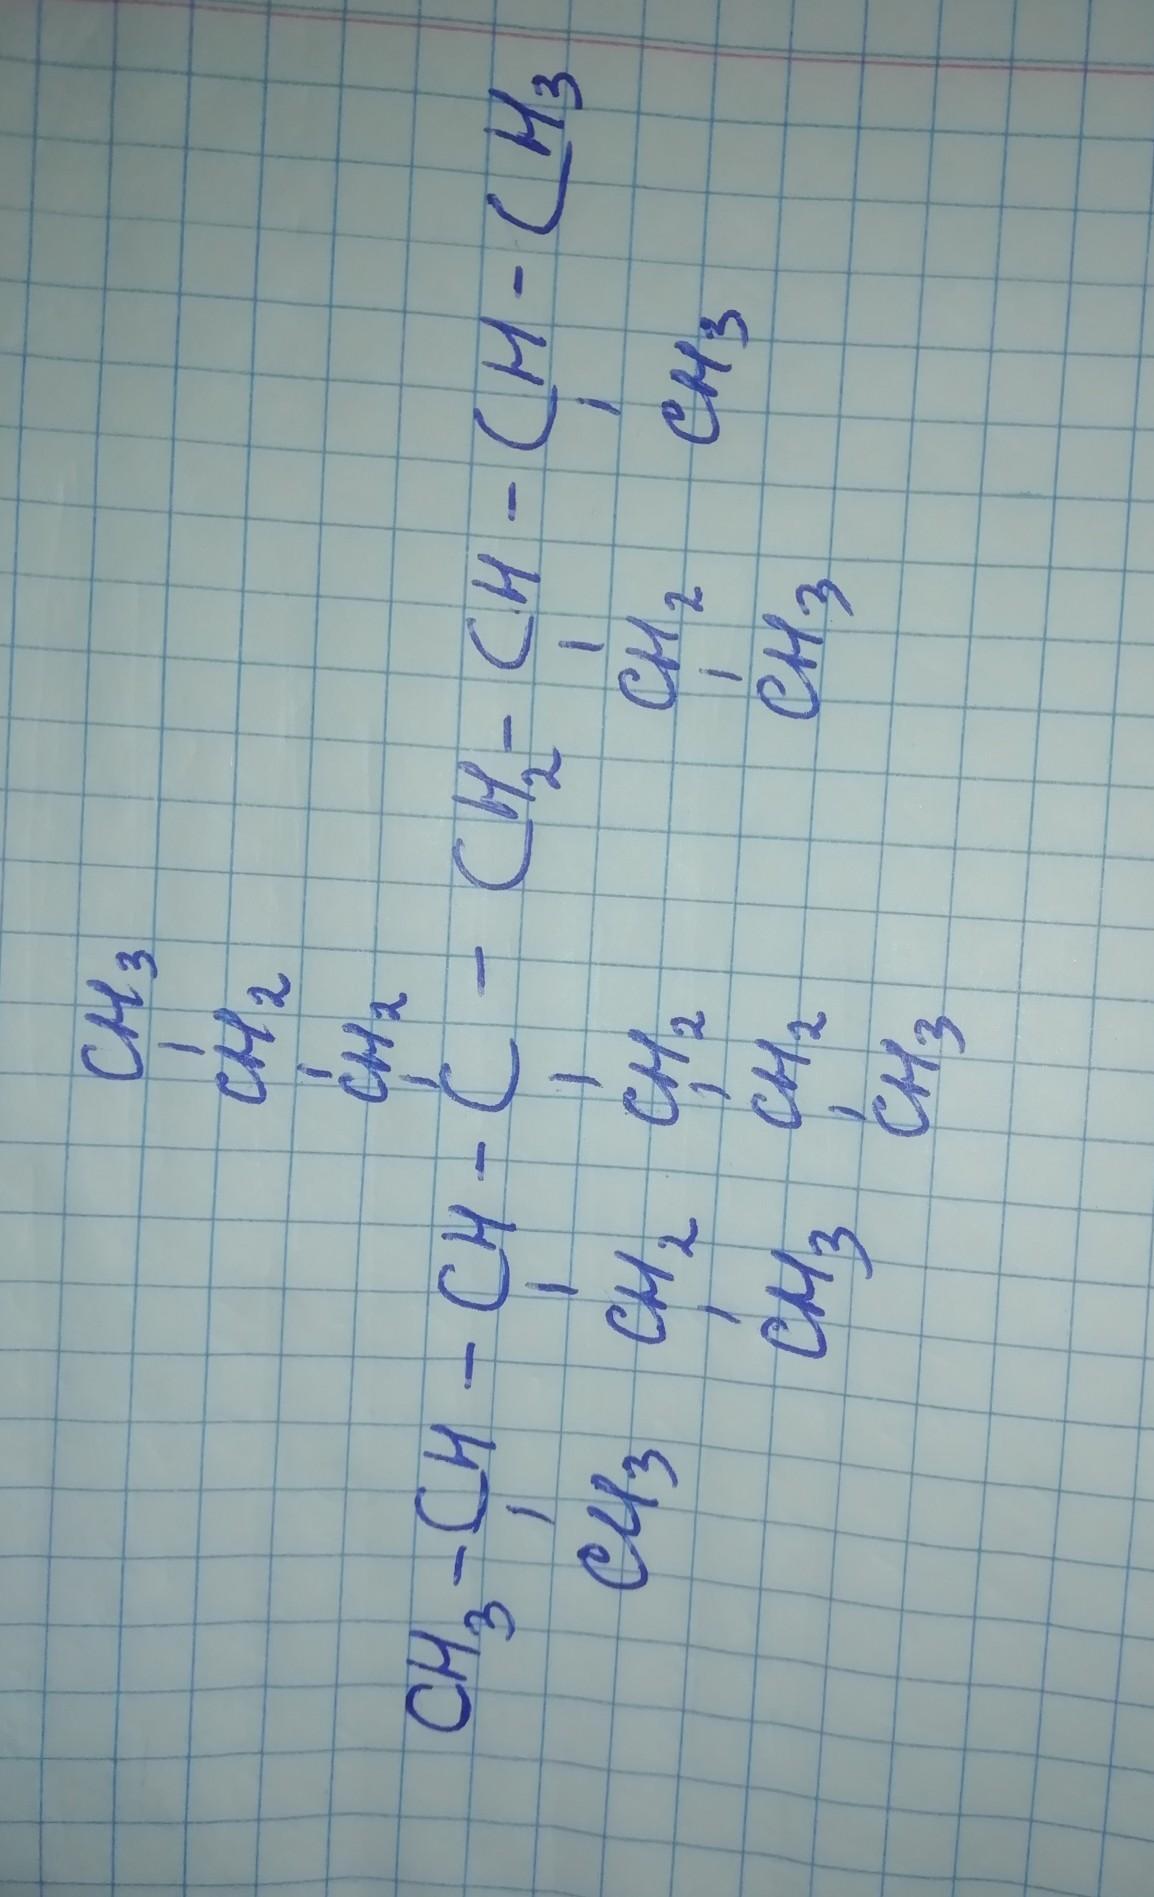 CH3
CH2
CH2
CH3 - CH - CH - C - CH2 - CH - CH - CH3
CH3 CH2 CH2 CH2 CH3
CH3 CH2 CH3
CH3